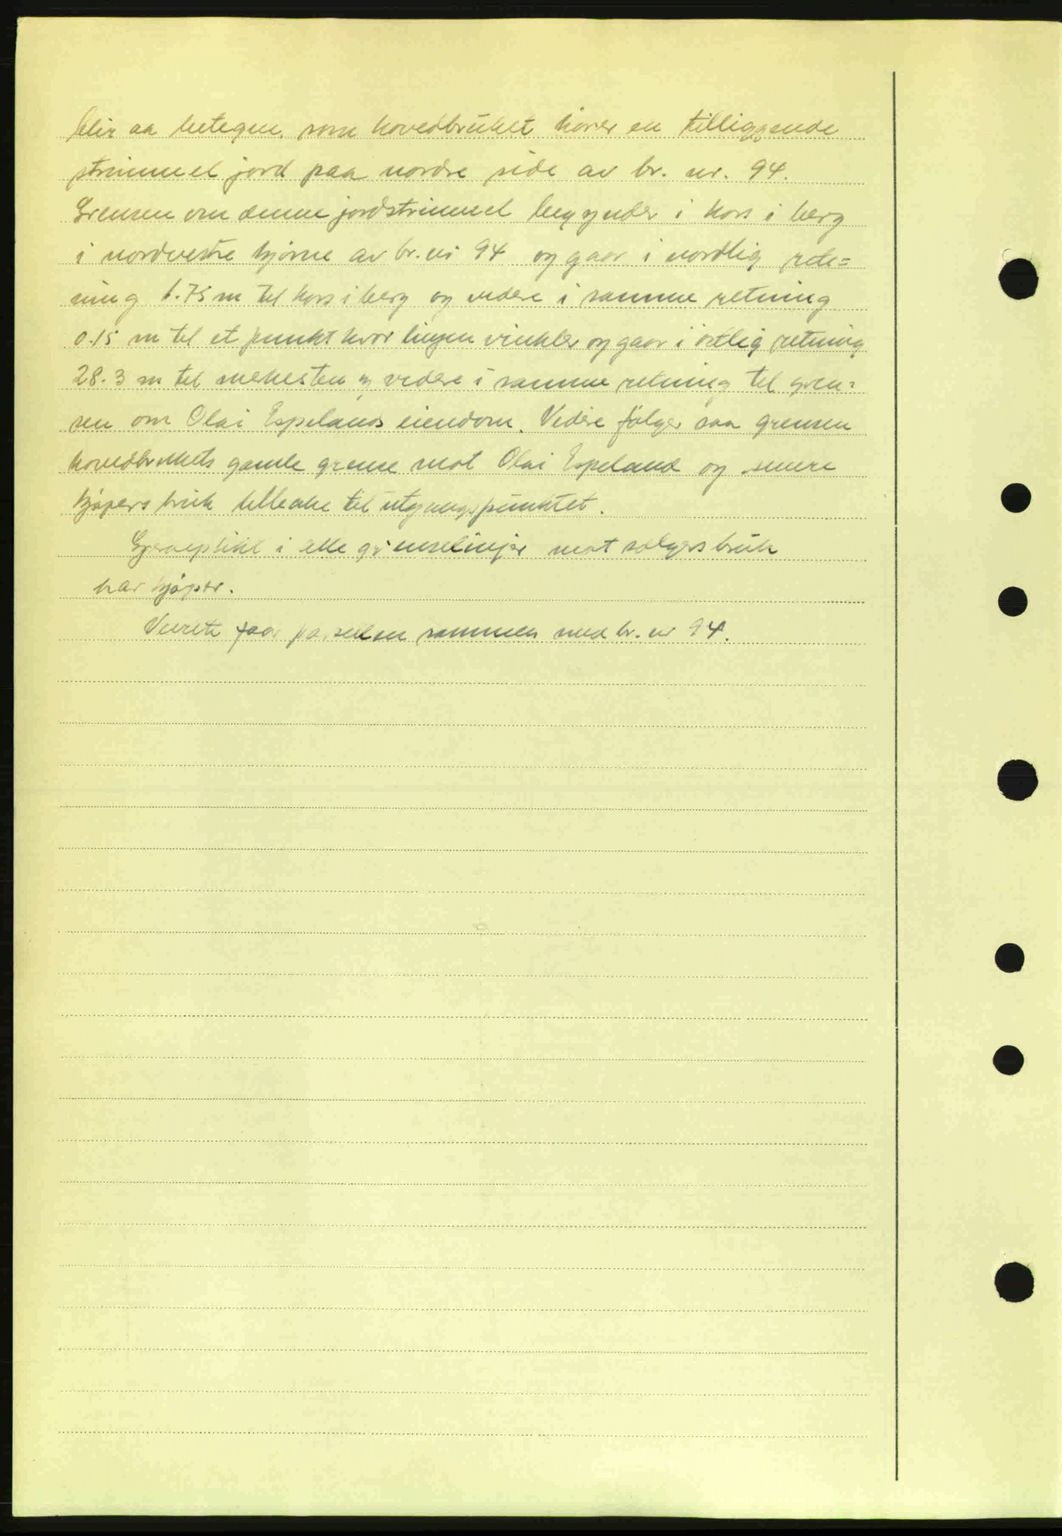 blir aa betegne som hovedbruket hører en tilliggende
strimmel jord paa nordre side av br. nr. 94.
Grensen om denne jordstrimmel begynder i kors i berg
i nordvestre hjørne av br. nr 94 og gaar i nordlig ret=
ning 6.75 m til kors i berg og videre i samme retning
0.15 m til et punkt hvor linjen vinkler og gaar i østlig retning
28.3 m til merkesten og videre i samme retning til gren=
sen om Olai Espelands eiendom. Videre følger saa grensen
hovedbrukets gamle grense mot Olai Espeland og senere
kjøpers bruk tilbake til utgangspunktet.
Gjerdeplikt i alle grenselinjer mot selgers bruk
har kjøper.
Veirett faar parsellen sammen med br. nr 94.